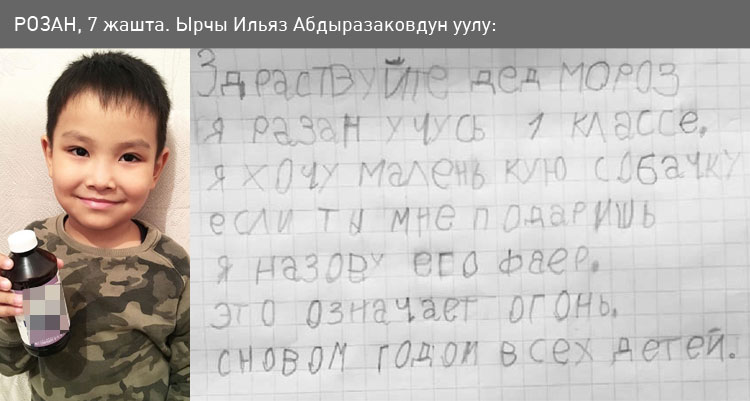 РОЗАН, 7 жашта. Ырчы Ильяз Абдыразаковдун уулу:
Здраствуйте дед мороз
я разан учусь 1 классе.
я хочу малень кую собачку
если ты мне подаришь
я назову его фаер.
это означает огонь.
сновом годом всех детей.